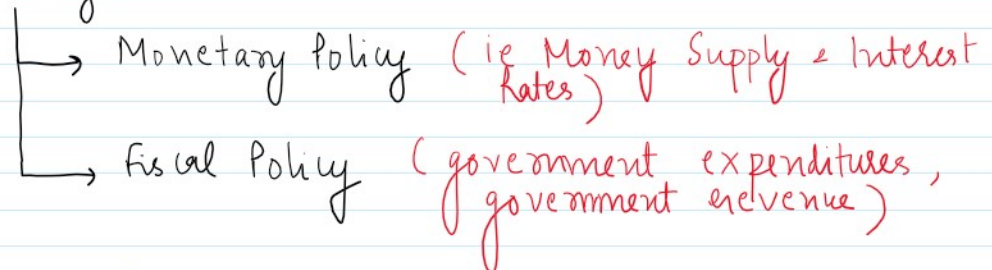 Monetary Policy (ie Money Supply & Interest
Rates)
Fiscal Policy (government expenditures,
government revenue)